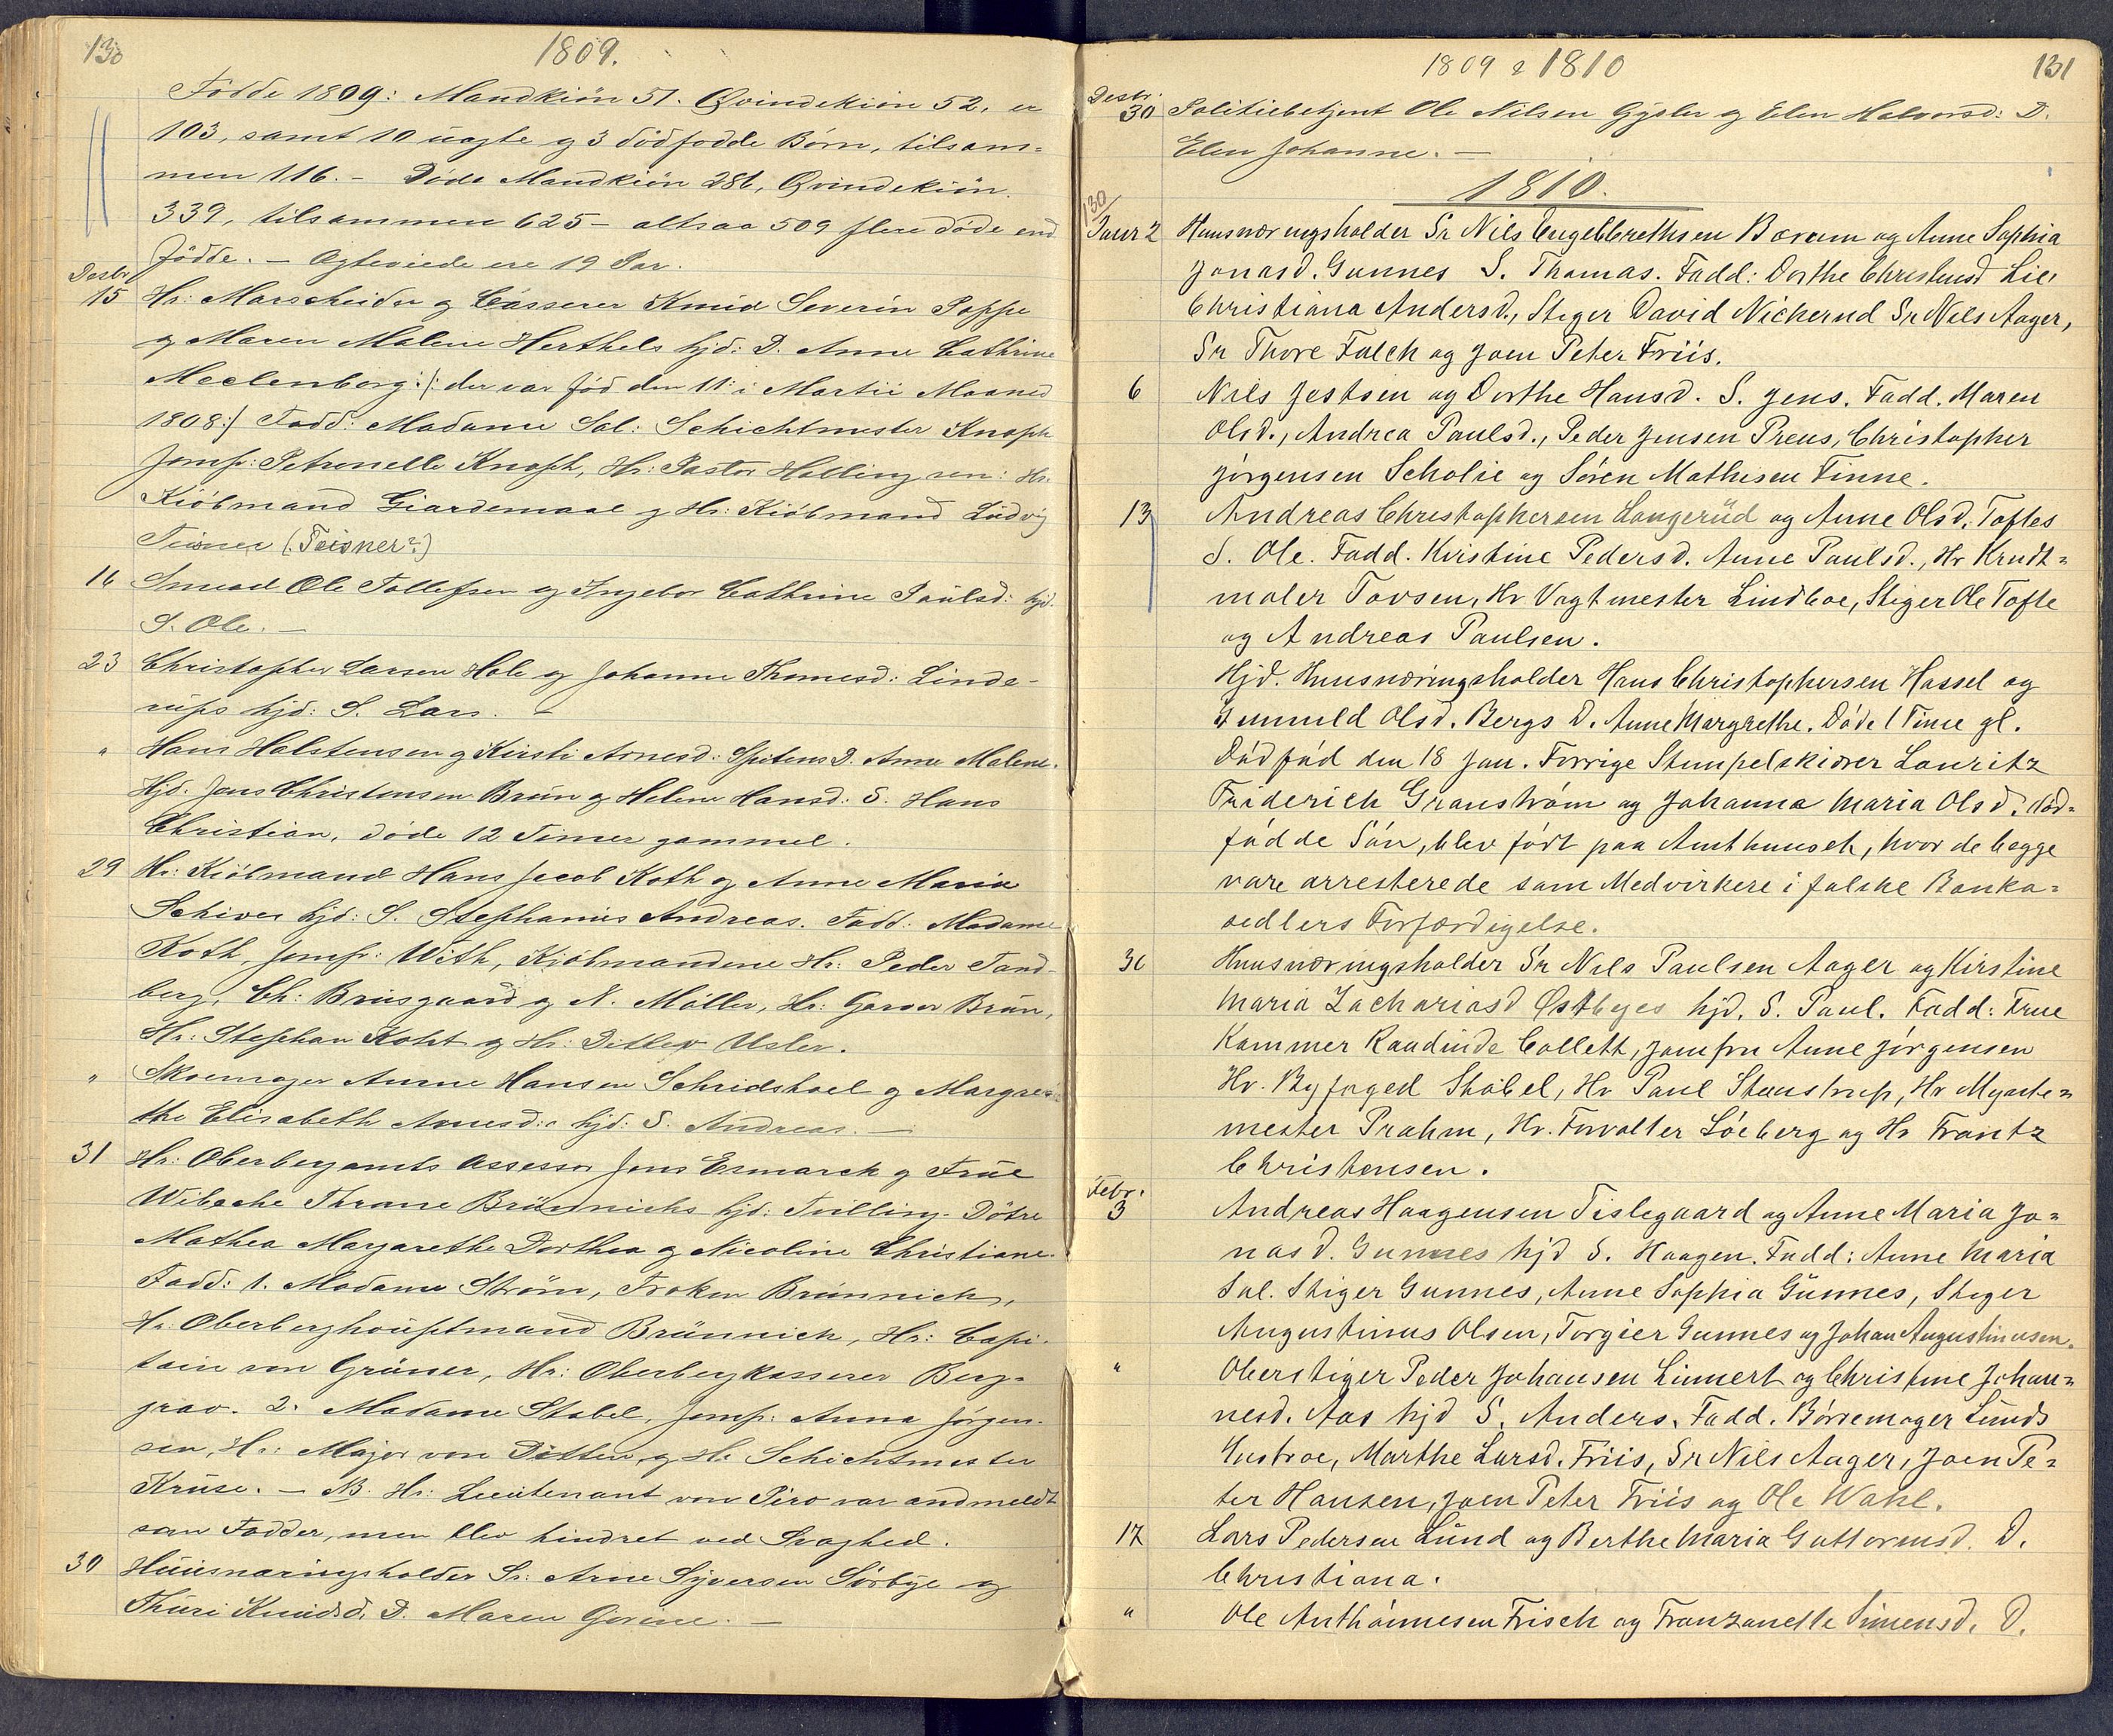 130
1809.
Fødde 1809: Mandkiön 51. Qvindekiön 52, er
103, samt 10 uægte og 3 dödfödde Børn, tilsam-
men 116. - Døde Mandkiön 286, Qvindekiön
339, tilsammen 625 - altsaa 509 flere döde end
födde. - Ægteviede ere 19 Par.
Desbr.
15 Hr: Marscheider og Casserer Knud Severin Poppe
og Maren Malene Herthels hjd: D. Anne Cathrine
Meclenborg :/: der var föd den 11: i Martii Maaned
1808:/ Fadd: Madame Sal: Schichtmester Knoph
Jomfr: Petronelle Knoph, Hr: Pastor Hölling sen: Hr.
Kiöbmand Giardemaal og Hr: Kiöbmand Ludvig
(Teisner?)
16 Smed Ole Tollefsen og Ingebor Cathrine Paulsd: hjd.
S. Ole. -
23 Christopher Larsen Hole og Johanne Thomesd: Linde-
rups hjd: S. Lars. -
" Hans Halstensen og Kirsti Arnesd: Spitens D. Anne Malene.
Hjd. Jens Christensen Brun og Helene Hansd: S. Hans
Christian, döde 12 Timer gammel.
29 Hr: Kiöbmand Hans Jacob Koth og Anne Maria
Schives hjd: S. Stephanus Andreas. Fadd: Madame
Koth, Jomfr: With, Kjöbmændene Hr: Peder Tand-
berg, Ch: Brusgaard og N. Möller, Hr: Garver Brun,
Hr: Stephan Koht og Hr: Ditlev Usler.
" Skoemager Anne Hansen Schridshoel og Margre-
the Elisabeth Arnesd: hjd: S. Andreas. -
31 Hr: Oberbergamts Assessor Jens Esmarch og Frue
Wibeche Thrane Brünnichs hjd: Tvilling-Døtre
Mathea Margarethe Dorthea og Nicoline Christiane.
Fadd: 1. Madame Strøm, Frøken Brünnich,
Hr: Oberberghauptmand Brünnich, Hr: Capi-
tain von Grüner, Hr: Oberbergkasserer Berg-
grav. 2. Madame Stabel, Jomfr: Anna Jørgen-
sen, Hr: Major von Ditten og Hr. Schichtmester
Kruse. - NB. Hr: Lieutenant von Piro var anmeldt
som Fadder, men blev hindret ved Svaghed.
30 Huusnæringsholder Sr: Arne Syversen Sørbye og
Thuri Knudsd. D. Maren Gorine. -
1809 & 1810
131
Desbr.
30 Politiebetjent Ole Nilsen Gysler og Elen Halvorsd: D.
Elen Johanne. -
1810.
130
Janr 2 Huusnæringsholder Sr Nils Engelbrethsen Bærum og Anne Sophia
Jonasd. Gunnes S. Thomas. Fadd: Dorthe Christensd Lie,
Christiana Andersd., Stiger David Nickerud Sr Nils Aager,
Sr Thore Falch og Joen Peter Friis.
6 Nils Jestsen og Dorthe Hansd. S. Jens. Fadd. Maren
Olsd., Andrea Paulsd., Peder Jensen Preus, Christopher
Jørgensen Scholie og Søren Mathisen Finne.
13 Andreas Christophersen Langerüd og Anne Olsd. Toftes
S. Ole. Fadd. Kirstine Pedersd. Anne Paulsd., Hr Krudt=
maler Tovsen, Hr Vagtmester Lindboe, Stiger Ole Tofte
og Andreas Paulsen.
Hjd. Huusnæringsholder Hans Christophersen Hassel og
Gunnild Olsd. Bergs D. Anne Margrethe. Døde 1 Time gl.
Dødfød den 18 Jan. Forrige Stempelskiærer Lauritz
Friderich Granstrøm og Johanna Maria Olsd: død=
fødde Søn, blev født paa Amthuuset, hvor de begge
vare arresterede som Medvirkere i falske Banko=
sedlers Forfærdigelse.
30 Huusnæringsholder Sr Nils Paulsen Aager og Kirstine
Maria Zachariasd Østbyes hjd. S. Paul. Fadd: Frue
Kammer Raadinde Collett, Jomfru Anne Jørgensen
Hr. Byfoged Stabel, Hr Paul Steenstrup, Hr Mynte=
mester Prahm, Hr. Forvalter Löeberg og Hr Frantz
Christensen.
Febr.
3 Andreas Haagensen Tislegaard og Anne Maria Jo=
nasd. Gunnes hjd S. Haagen. Fadd: Anne Maria
Sal. Stiger Gunnes, Anne Sophia Gunnes, Stiger
Augustinus Olsen, Torgier Gunnes og Johan Augustinusen.
" Oberstiger Peder Johansen Linnert og Christine Johan=
nesd. Aas hjd S. Anders. Fadd. Børremager Lunds
Hustroe, Marthe Larsd. Friis, Sr Nils Aager, Joen Pe=
ter Hansen, Joen Peter Friis og Ole Wahl.
17 Lars Pedersen Lund og Berthe Maria Guttormsd. D.
Christiana.
" Ole Anthönnesen Frisch og Franzanette Simensd. D.